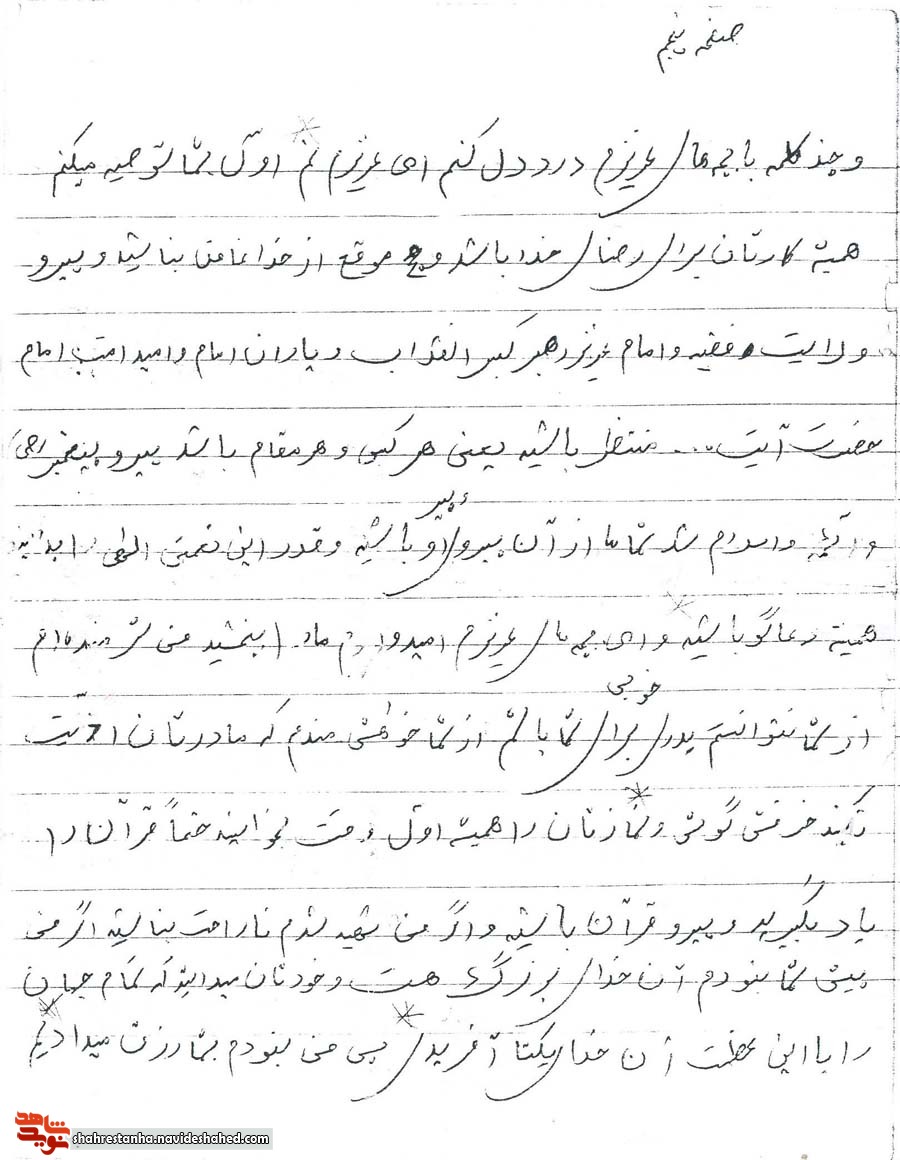 صفحه پنجم
و چند کلمه با بچه های عزیزم درد دل کنم ای عزیزانم اول بشما توصیه میکنم
همیشه کارتان برای رضای خدا باشد و هیچ موقع از خدا غافل نباشید و پیرو
ولایت فقیه و امام عزیز رهبر کبیر انقلاب و یاران امام و امید امت امام
حضرت آیت ... منتظر باشید یعنی هر کسی و هر مقام باشد پیرو پیغمبر (ص)
و ائمه و اسلام شد شما ها از آن پیروی و باشید و قدر این نعمتی الهی را بدانید
همیشه دعاگو باشید و ای بچه های عزیزم امیدوارم مارا ببخشید من شرمنده ام
از شما نتوانستم پدری خوبی برای شما باشم از شما خواهشمندم که مادرتان اذیت
نکنید حرفش گوش و نمازتان را همیشه اول وقت بخوانید حتماً قرآن را
یاد بگیرید و پیرو قرآن باشید و اگر من شهید شدم ناراحت نباشید اگر من
پیش شما نبودم آن خدای بزرگ هست و خودتان میدانید که تمام جهان
را با این عظمت آن خدای یکتا آفریدی پس من نبودم بشما رزق میدادیم
شاهد
نوید
shahrestanha.navideshahed.com